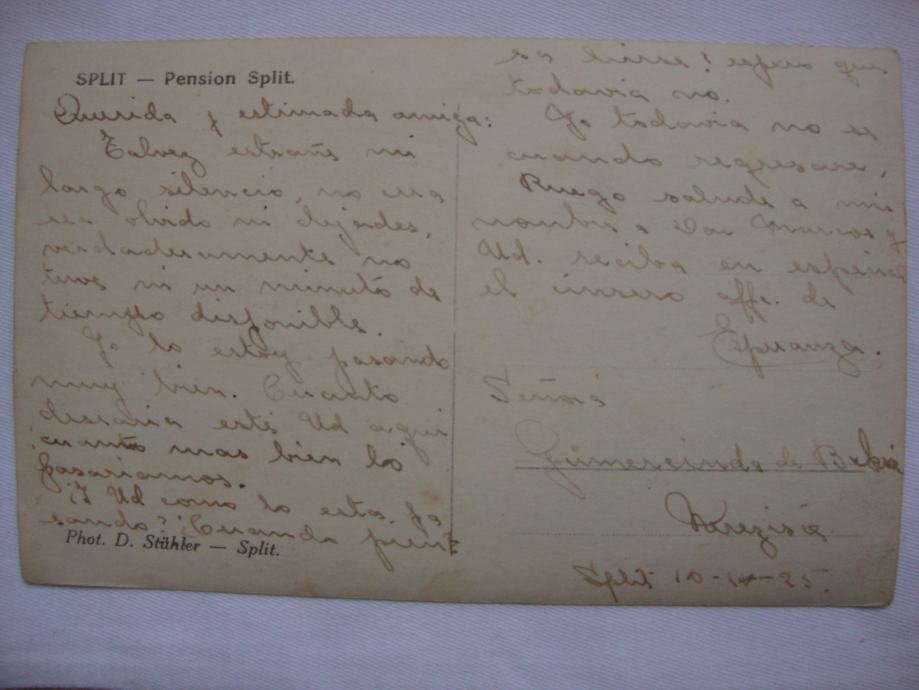 SPLIT — Pension Split.
Querida y estimada amiga:
Talvez estrañe mi
largo silencio, no crea
sea olvido ni dejades,
verdaderamente no
tuve ni un minuto de
tiempo disponible.
Yo lo estoy pasando
muy bien. Cuanto
desearia este Ud aqui
cuanto mas bien lo
pasariamos.
¿Y Ud como lo esta pa
sando? ¿Cuando pien
Phot. D. Stühler — Split.
sa irse? espero que
todavia no.
Yo todavia no se
cuando regresare,
Ruego salude a mi
nombre a Don Marcos y
Ud. reciba en especial
el sinsero affc. de
Esperanza.
Señora
Gumercinda de
Split 10-25.